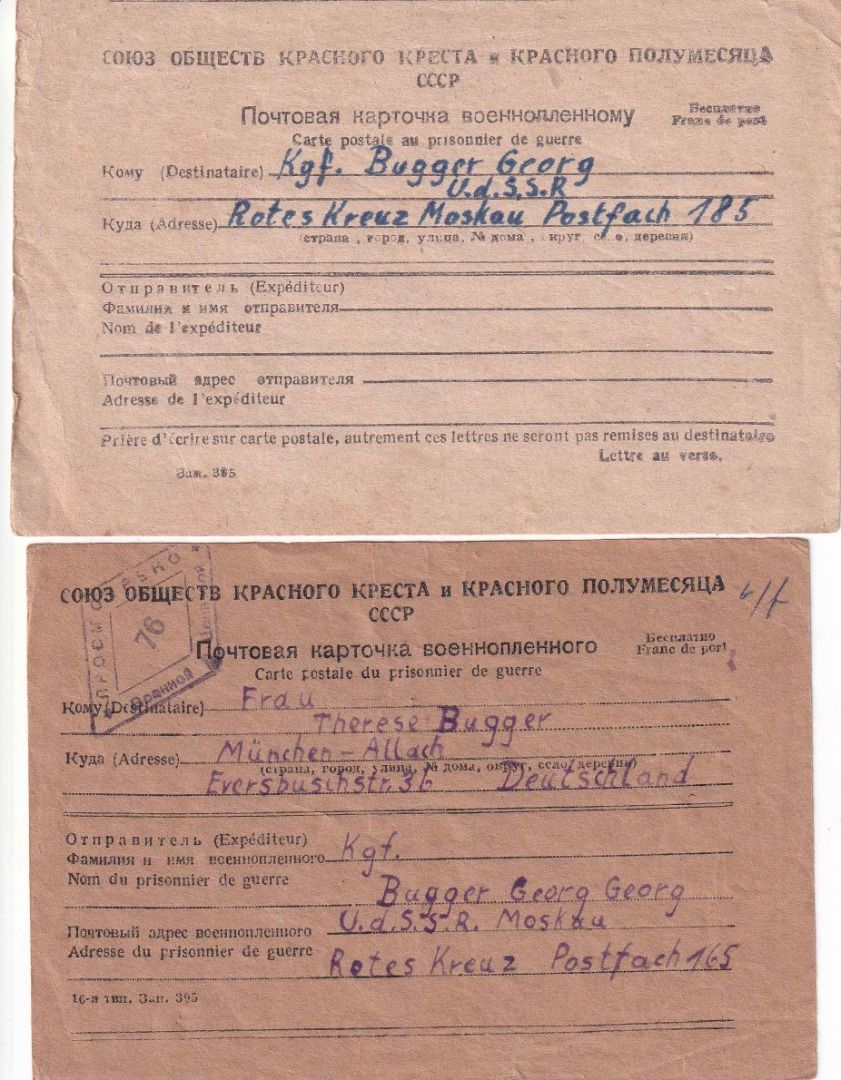 СОЮЗ ОБЩЕСТВ КРАСНОГО КРЕСТА и КРАСНОГО ПОЛУМЕСЯЦА
СССР
Почтовая карточка военнопленному
Бесплатно
Franc de port
Carte postale au prisonnier de guerre
Кому (Destinataire) Kgf. Bugger Georg
U.d.S.S.R
Куда (Adresse) Rotes Kreuz Moskau Postfach 185
(страна, город, улица, № дома, округ, село, деревня)
Отправитель (Expéditeur)
Фамилия и имя отправителя
Nom de l'expéditeur
Почтовый адрес отправителя
Adresse de l'expéditeur
Prière d'écrire sur carte postale, autrement ces lettres ne seront pas remises au destinataire
Lettre au verso.
Зак. 395
СОЮЗ ОБЩЕСТВ КРАСНОГО КРЕСТА и КРАСНОГО ПОЛУМЕСЯЦА
СССР
ПРОСМОТРЕНО
76
Военной Цензурой
Почтовая карточка военнопленного
Бесплатно
Franc de port
Carte postale du prisonnier de guerre
Кому (Destinataire) Frau
Therese Bugger
Куда (Adresse) München-Allach
(страна, город, улица, № дома, округ, село, деревня)
Eversbuschstr. 36 Deutschland
Отправитель (Expéditeur)
Фамилия и имя военнопленного Kgf.
Nom du prisonnier de guerre
Bugger Georg Georg
Почтовый адрес военнопленного U.d.S.S.R. Moskau
Adresse du prisonnier de guerre
Rotes Kreuz Postfach 165
16-я тип. Зак. 395